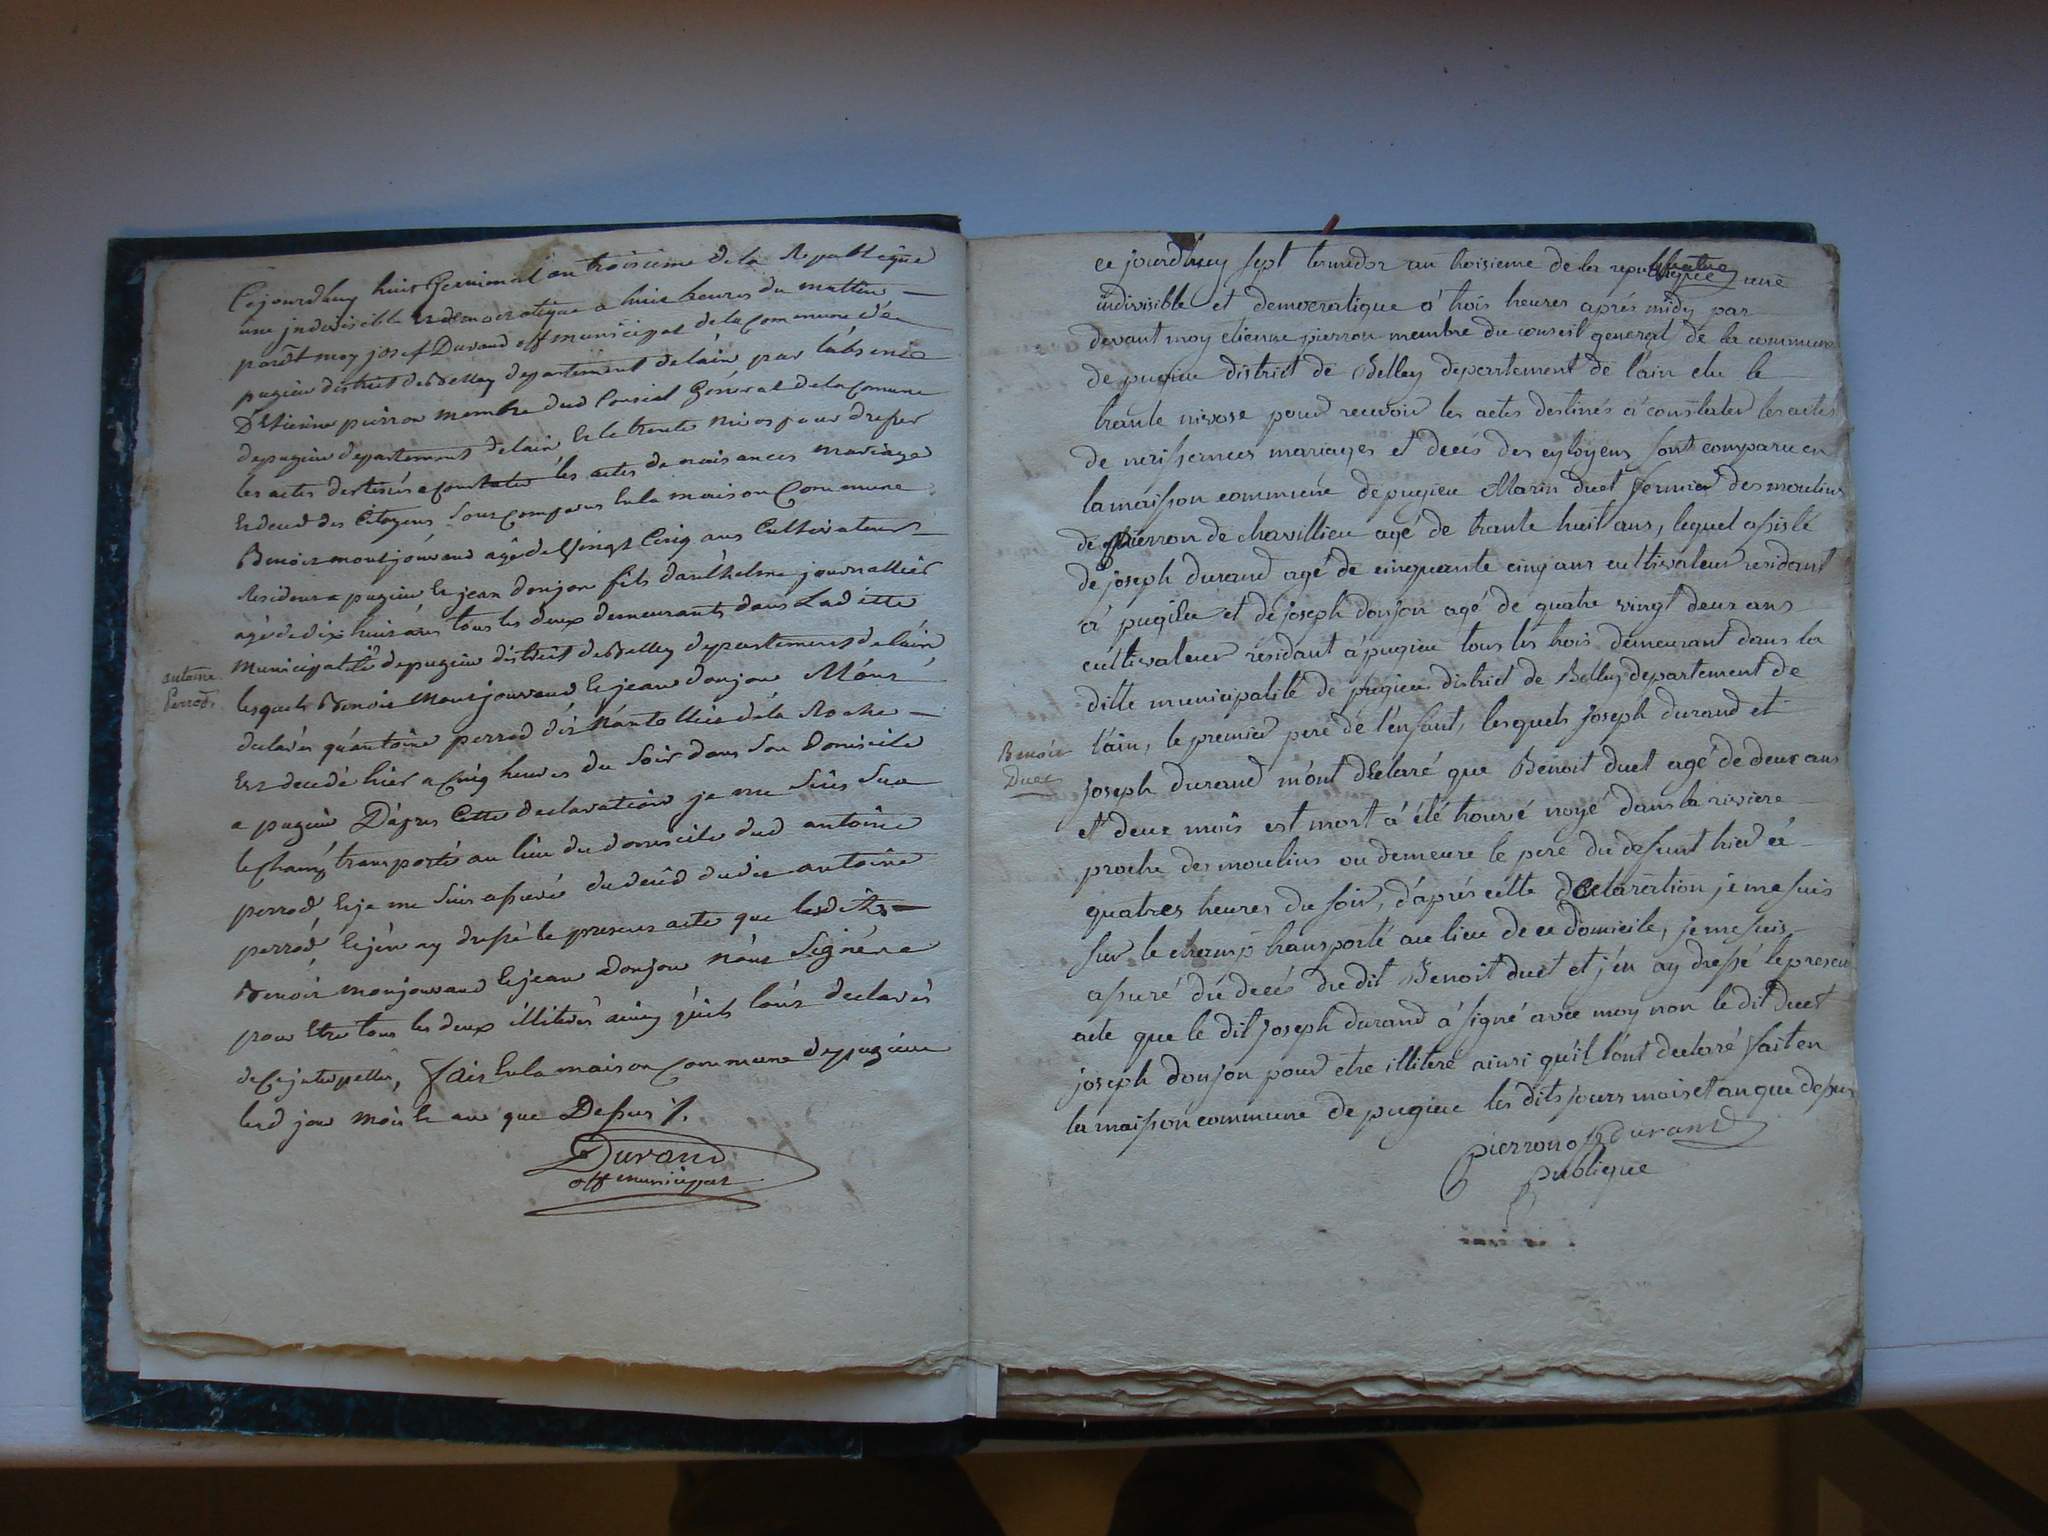 Cejourdhuy huit Germinal an troisieme de la Republique
une indivisible et democratique a huit heures du mattin
pardt moy josef Durand off municipal de la Commune de
pugieu district de Belley departement de lain par labsence
D'Etienne pierron membre dud Conseil Général de la Comune
de pugieu departement de lain le trente nivos pour dresser
les actes destinés a constater les actes de naisances mariage
et deces des Citoyens sont comparus en la maison Commune
Benoit montjouvand agé de Vingt Cinq ans Cultivateur
Resident a pugieu et jean donjon fils d'anthelme journallier
agé de dix huit ans tous les deux demeurants dans Ladite
municipalité de pugieu district de Belley departement de lain
antoine
perrod
lesquels Benoit montjouvand et jean donjon M'ont
declarés qu'antoine perrod dit Nantollier de la Roche
est decedé hier a Cinq heures du soir dans son Domicile
a pugieu D'apres Cette declaration je me suis sur
le Champ transporté au lieu du domicile dud antoine
perrod et je me suis assuré du deces dudit antoine
perrod et j'en ay dressé le present acte que lesdits
Benoit monjouvand et jean donjon n'ont Signéra
pour Etre tous les deux illiterés ainsy qu'ils l'ont declarés
de Ce interpellés, fait en la maison Commune de pugieu
lesd jour mois et an que Dessus
Durand
off municipal
ce jourdhuy sept termidor an troisieme de la republique une
indivisible et democratique à trois heures après midy par
devant moy etienne pierron membre du conseil general de la commune
de pugieu district de Belley departement de l'ain elu le
trante nivose pour recevoir les actes destinés à constater les actes
de naissances mariages et decés des cytoyens sont comparu en
la maison commune de pugieu Marin duet fermier des moulins
de pierron de chavillieu agé de trante huit ans, lequel assisté
de joseph durand agé de cinquante cinq ans cultivateur résidant
à pugieu et de joseph donjon agé de quatre vingt deux ans
cultivateur résidant à pugieu tous les trois demeurant dans la
ditte municipalité de pugieu district de Belley departement de
Benoit
Duet
l'ain, le premier pere de l'enfant, lesquels joseph durand et
joseph durand m'ont declaré que Benoit duet agé de deux ans
et deux mois est mort à été trouvé noyé dans la riviere
proche des moulins ou demeure le pere du defunt hier à
quatres heures du soir, d'après cette declaration je me suis
sur le champ transporté au lieu de ce domicile, je me suis
assuré du decés du dit Benoit duet et j'en ay dressé le present
acte que le dit joseph durand à signé avec moy non le dit duet
joseph donjon pour etre illiteré ainsi qu'il l'ont declaré fait en
la maison commune de pugieu les dits jours mois et an que dessus
pierron off durand
publique